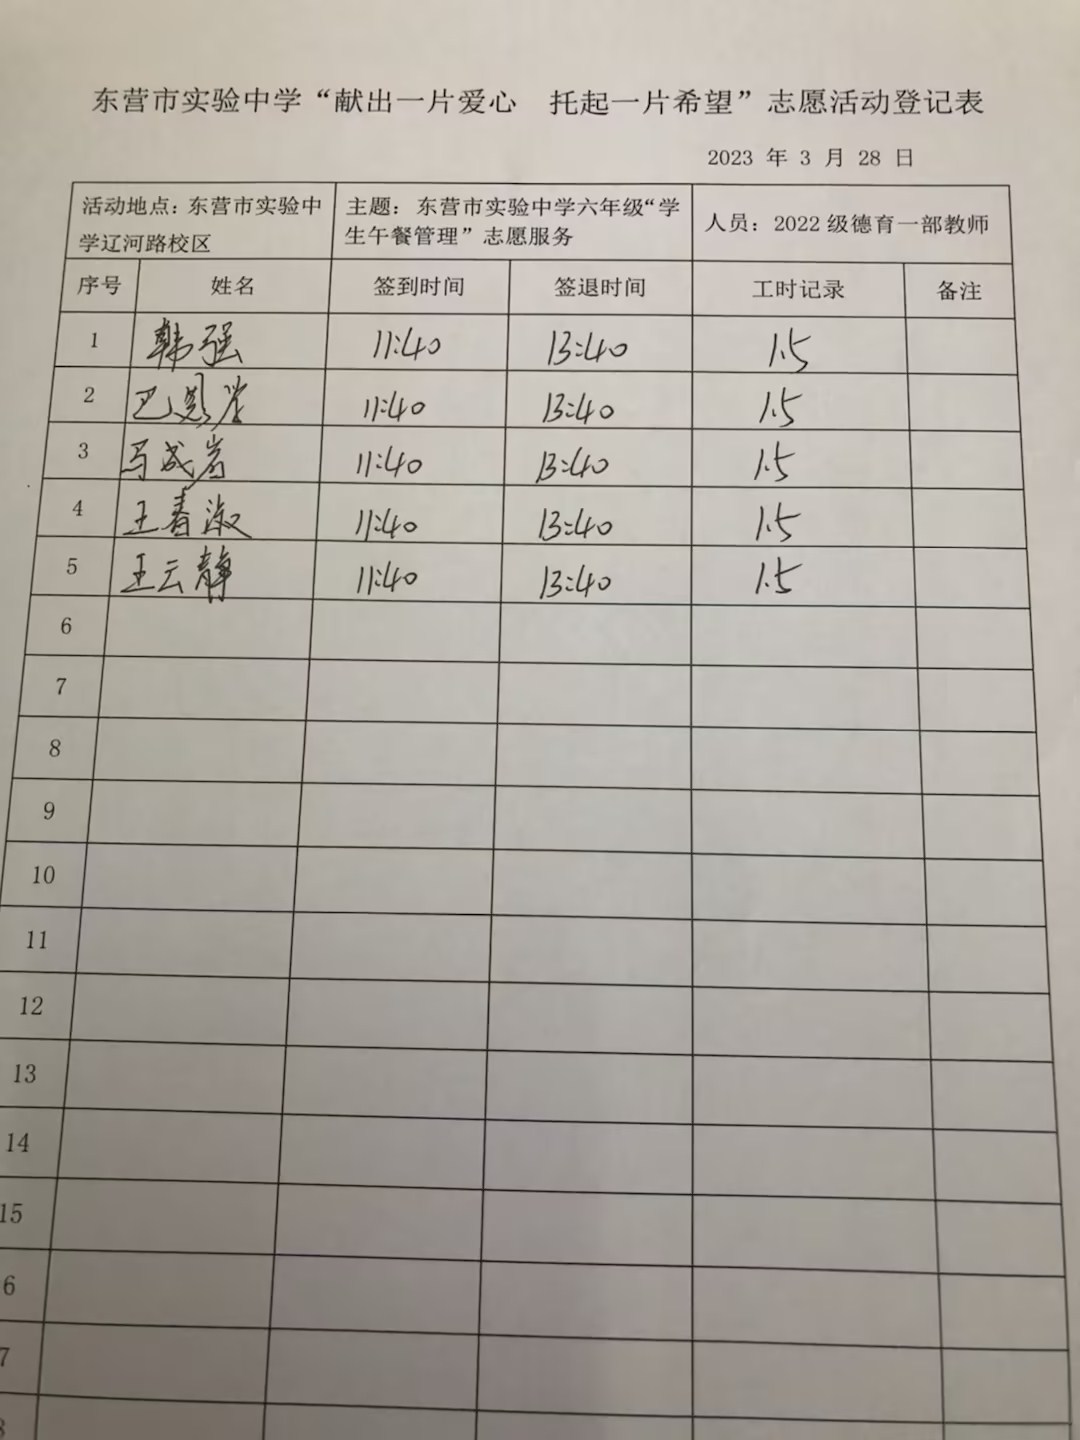 东营市实验中学“献出一片爱心 托起一片希望”志愿活动登记表
2023 年 3 月 28 日
活动地点：东营市实验中
学辽河路校区
主题：东营市实验中学六年级“学
生午餐管理”志愿服务
人员：2022级德育一部教师
序号 姓名 签到时间 签退时间 工时记录 备注
1 韩强 11:40 13:40 1.5
2 巴 11:40 13:40 1.5
3 马成岩 11:40 13:40 1.5
4 王春淑 11:40 13:40 1.5
5 王云静 11:40 13:40 1.5
6
7
8
9
10
11
12
13
14
15
6
7
8